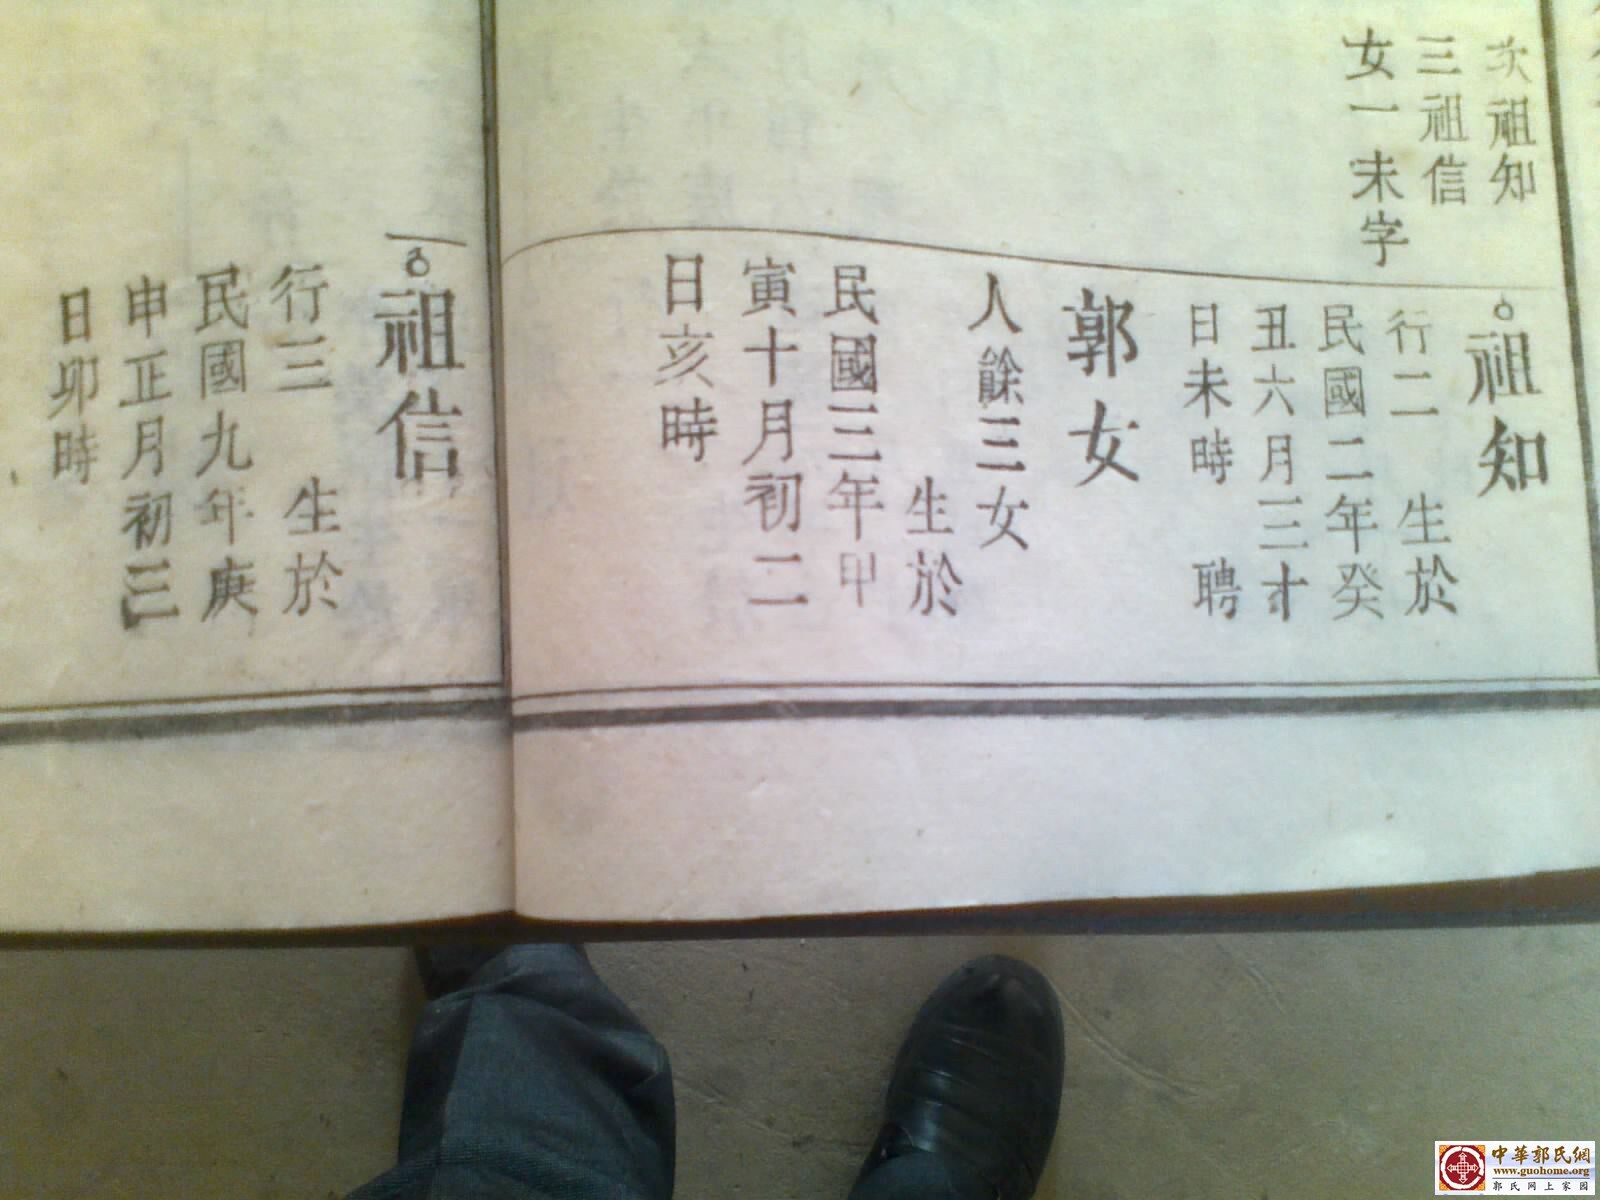 次祖知
三祖信
女一未字
祖知
行二 生於
民國二年癸
丑六月三十
日未時 聘
郭女
人餘三女
生於
民國三年甲
寅十月初二
日亥時
祖信
行三 生於
民國九年庚
申正月初三
日卯時
中華郭氏網
www.guohome.org
郭氏网上家园